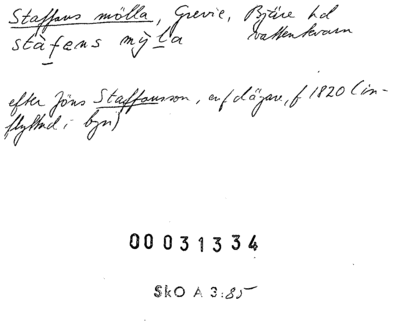 Staffans mölla, Grevie, Bjäre hd
ståfens mỳla vattenkvarn
efter Jöns Staffansson, en f d ägare, f 1820 (in-
flyttad i byn)
00031334
SkO A 3:85